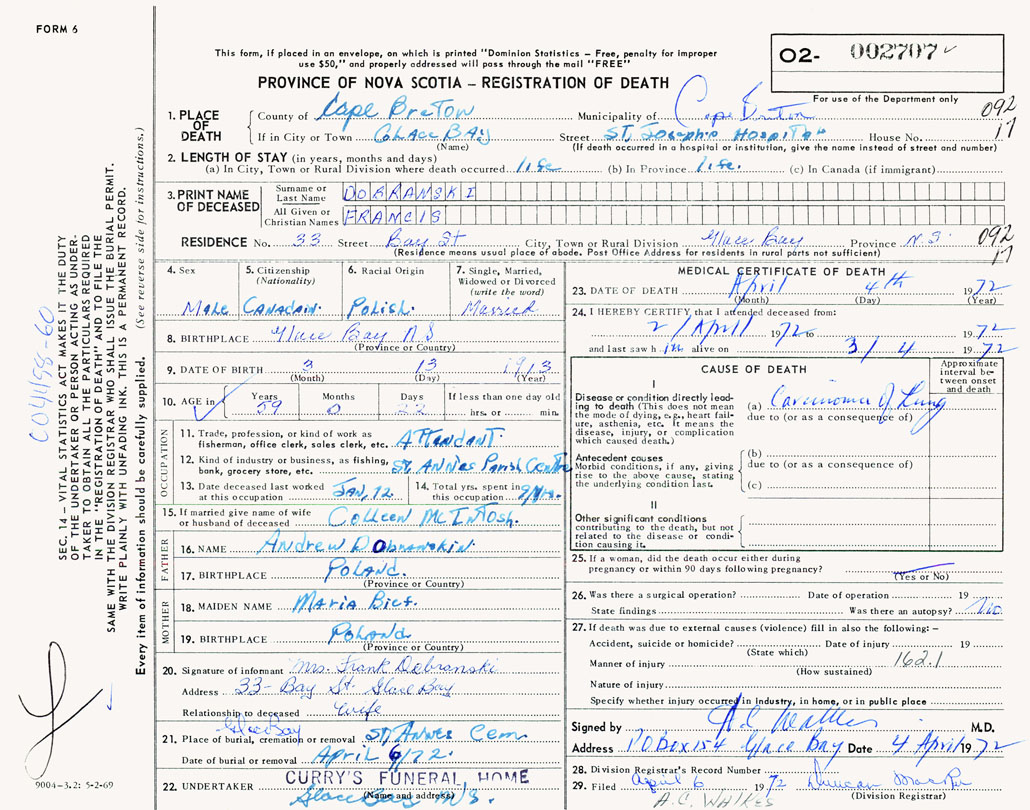 FORM 6
02- 002707
This form, if placed in an envelope, on which is printed "Dominion Statistics – Free, penalty for improper
use $50," and properly addressed will pass through the mail "FREE"
PROVINCE OF NOVA SCOTIA – REGISTRATION OF DEATH
For use of the Department only
092
17
1. PLACE OF DEATH
County of Cape Breton Municipality of Cape Breton
If in City or Town Glace Bay Street St. Joseph's Hospital House No.
(Name) (If death occurred in a hospital or institution, give the name instead of street and number)
2. LENGTH OF STAY (in years, months and days)
(a) In City, Town or Rural Division where death occurred life (b) In Province life. (c) In Canada (if immigrant)
3. PRINT NAME OF DECEASED
Surname or Last Name DOBRANSKI
All Given or Christian Names FRANCIS
RESIDENCE No. 33 Street Bay St City, Town or Rural Division Glace Bay Province N.S. 092
17
(Residence means usual place of abode. Post Office Address for residents in rural parts not sufficient)
4. Sex Male
5. Citizenship (Nationality) Canadain.
6. Racial Origin Polish.
7. Single, Married, Widowed or Divorced (write the word) Married
8. BIRTHPLACE Glace Bay N.S
(Province or Country)
9. DATE OF BIRTH 3 13 1913
(Month) (Day) (Year)
10. AGE in Years 59 Months 0 Days 22 If less than one day old
hrs. or min.
OCCUPATION
11. Trade, profession, or kind of work as
fisherman, office clerk, sales clerk, etc. Attendant.
12. Kind of industry or business, as fishing,
bank, grocery store, etc. St. Annes Parish Centre
13. Date deceased last worked
at this occupation JAN, 72
14. Total yrs. spent in
this occupation
15. If married give name of wife
or husband of deceased Colleen McIntosh.
FATHER
16. NAME Andrew Dobranskin.
17. BIRTHPLACE Poland.
(Province or Country)
MOTHER
18. MAIDEN NAME Maria
19. BIRTHPLACE Poland
(Province or Country)
20. Signature of informant Mrs. Frank Dobranski
Address 33 - Bay St. Glace Bay
Relationship to deceased Wife
Glace Bay
21. Place of burial, cremation or removal St, Annes Cem.
Date of burial or removal April 6/72.
22. UNDERTAKER CURRY'S FUNERAL HOME
(Name and address) Glace Bay N.S.
MEDICAL CERTIFICATE OF DEATH
23. DATE OF DEATH April 4th 1972
(Month) (Day) (Year)
24. I HEREBY CERTIFY, that I attended deceased from:
2 / April 1972 to 1972
and last saw him alive on 3 / 4 1972
CAUSE OF DEATH
Approximate interval between onset and death
I
Disease or condition directly leading to death (This does not mean the mode of dying, e.g., heart failure, asthenia, etc. It means the disease, injury, or complication which caused death.)
(a) Carcinoma of Lung
due to (or as a consequence of)
Antecedent causes
Morbid conditions, if any, giving rise to the above cause, stating the underlying condition last.
(b)
due to (or as a consequence of)
(c)
II
Other significant conditions
contributing to the death, but not related to the disease or condition causing it.
25. If a woman, did the death occur either during
pregnancy or within 90 days following pregnancy?
(Yes or No)
26. Was there a surgical operation? Date of operation 19
State findings Was there an autopsy? No
27. If death was due to external causes (violence) fill in also the following: –
Accident, suicide or homicide? Date of injury 19
(State which)
Manner of injury 162.1
(How sustained)
Nature of injury
Specify whether injury occurred in industry, in home, or in public place
Signed by M.D.
Address P O Box 154 Glace Bay Date 4 April 1972
28. Division Registrar's Record Number
29. Filed April 6 1972 Duncan
(Division Registrar)
A.C. WALKES
SEC. 14 – VITAL STATISTICS ACT MAKES IT THE DUTY
OF THE UNDERTAKER OR PERSON ACTING AS UNDERTAKER TO OBTAIN ALL THE PARTICULARS REQUIRED
IN THE "REGISTRATION OF DEATH" AND TO FILE THE
SAME WITH THE DIVISION REGISTRAR WHO SHALL ISSUE THE BURIAL PERMIT.
WRITE PLAINLY WITH UNFADING INK. THIS IS A PERMANENT RECORD.
Every item of information should be carefully supplied. (See reverse side for instructions.)
9004-3.2: 5-2-69